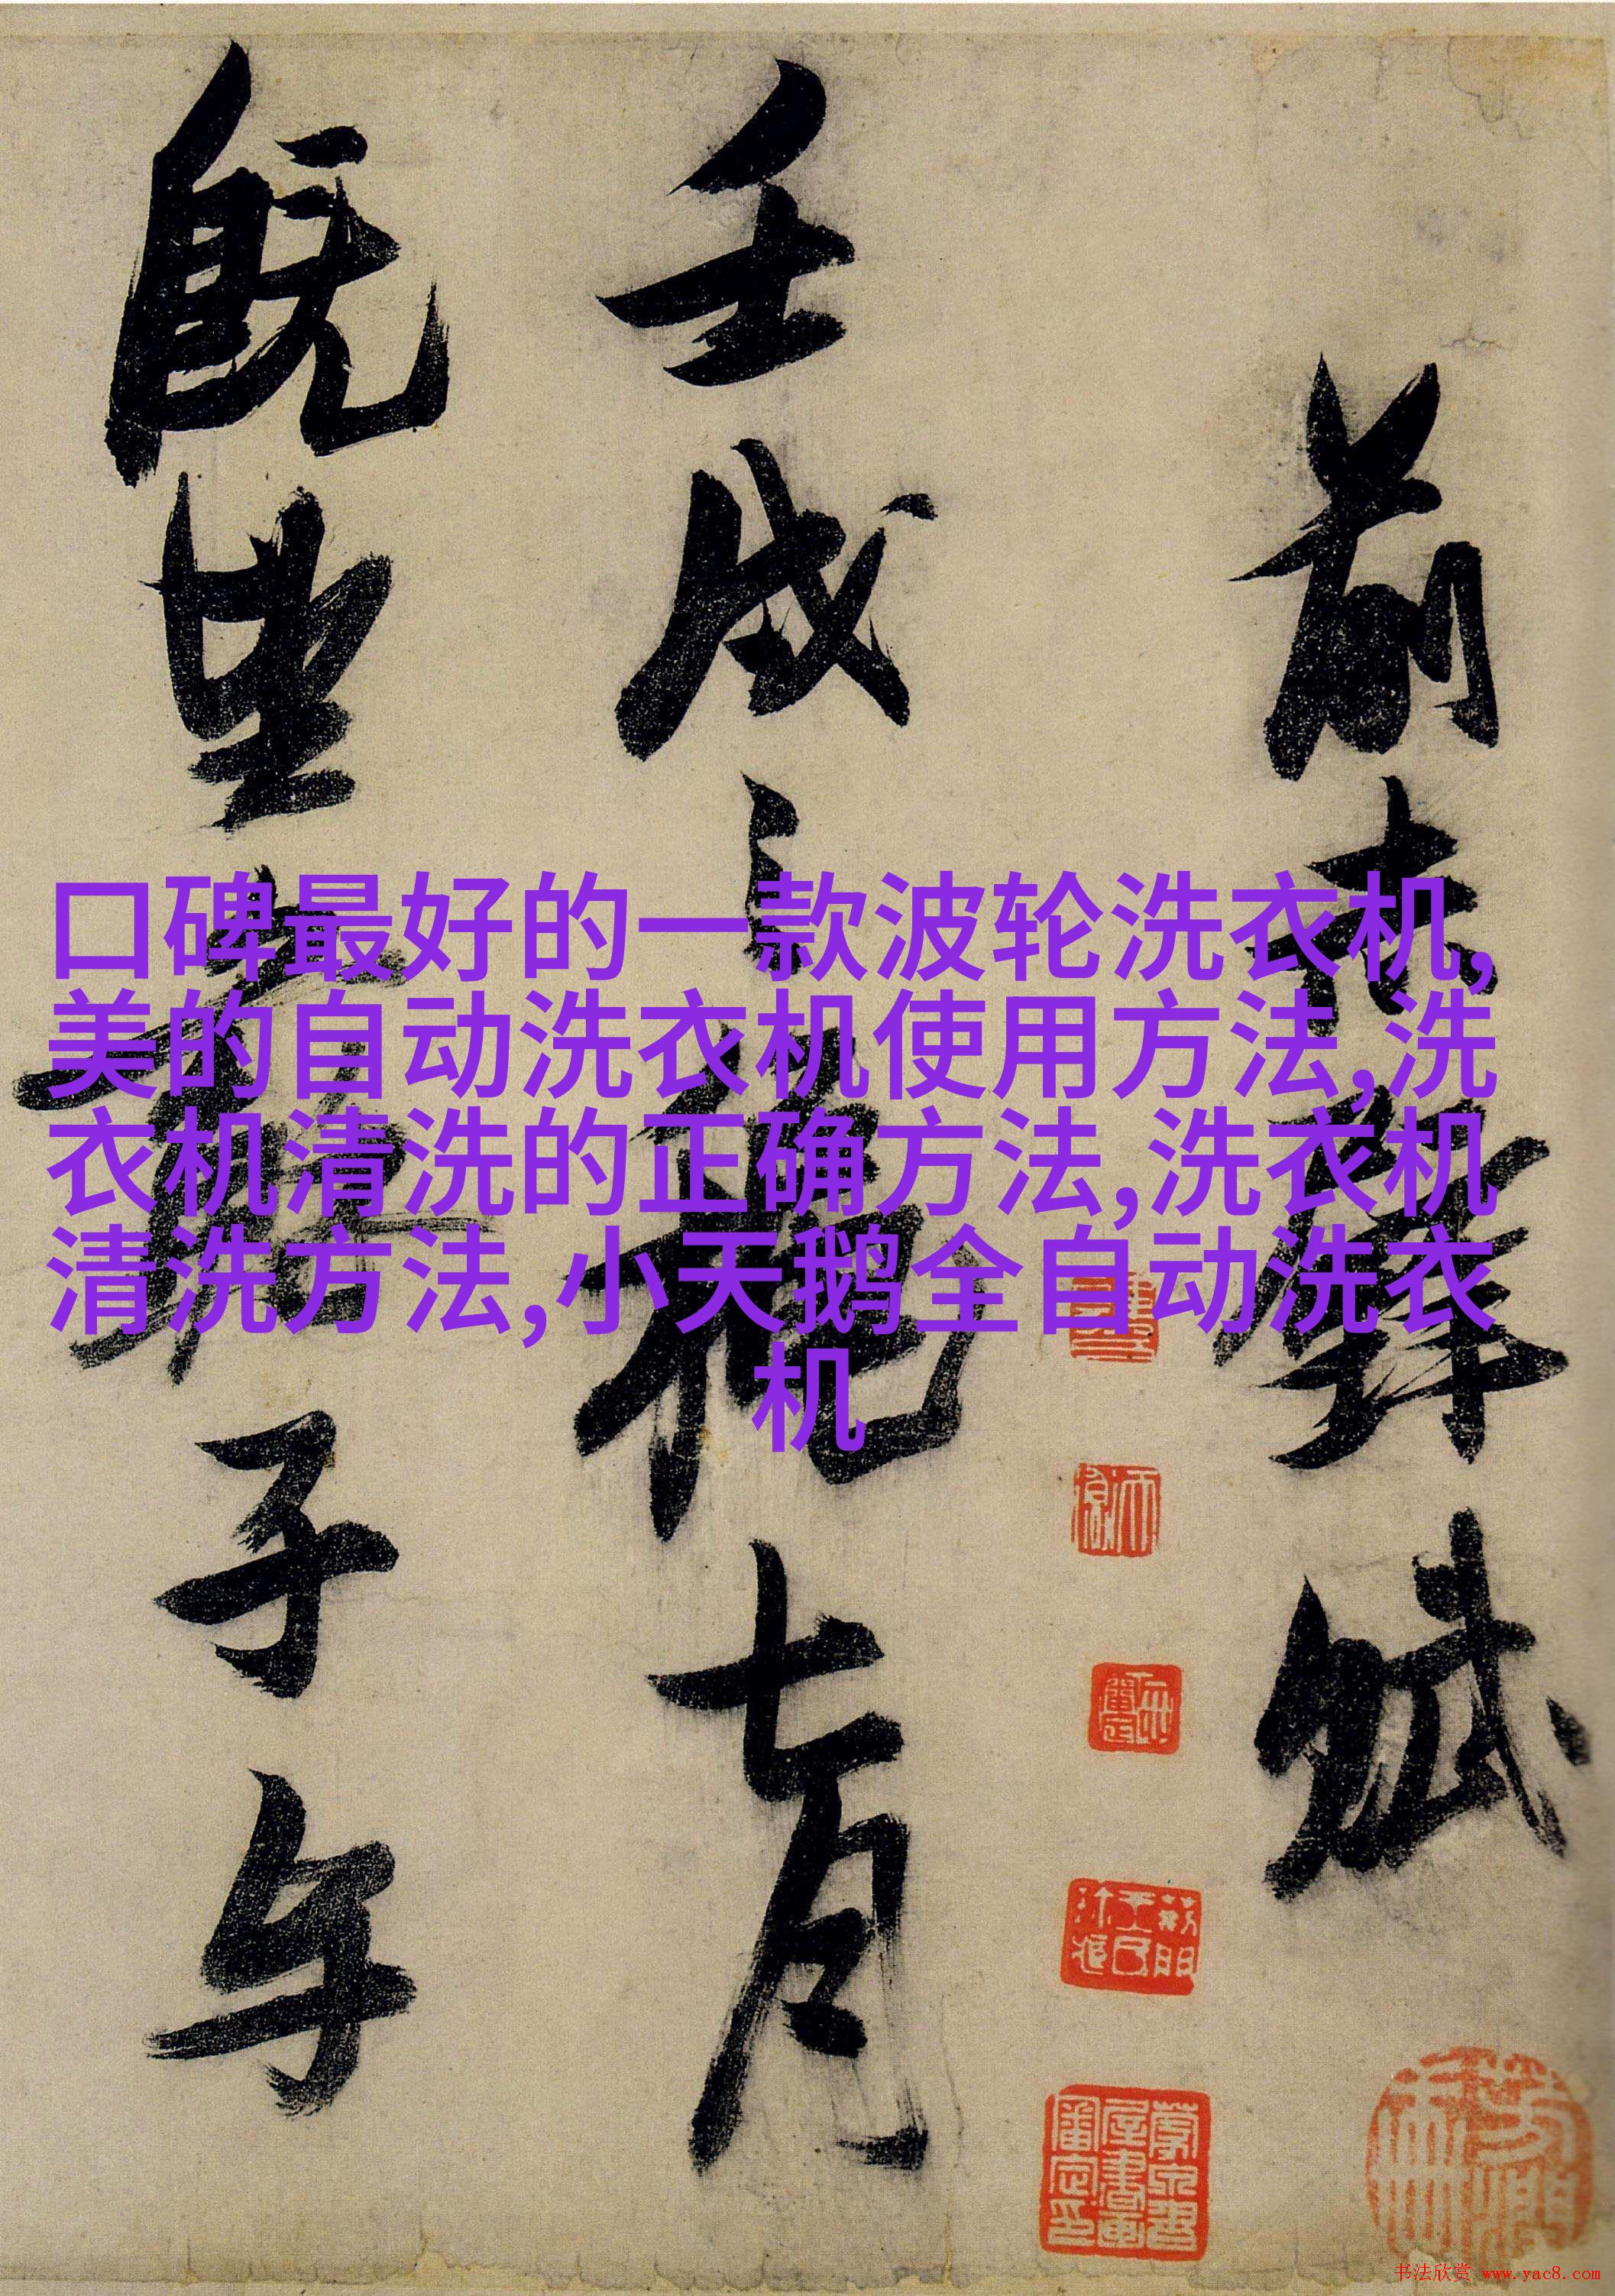 口碑最好的一款波轮洗衣机,
美的自动洗衣机使用方法,洗
衣机清洗的正确方法,洗衣机
清洗方法,小天鹅全自动洗衣
机
前赤壁賦
壬戌之穐七月
既望蘇子与
书法欣赏 www.yac8.com